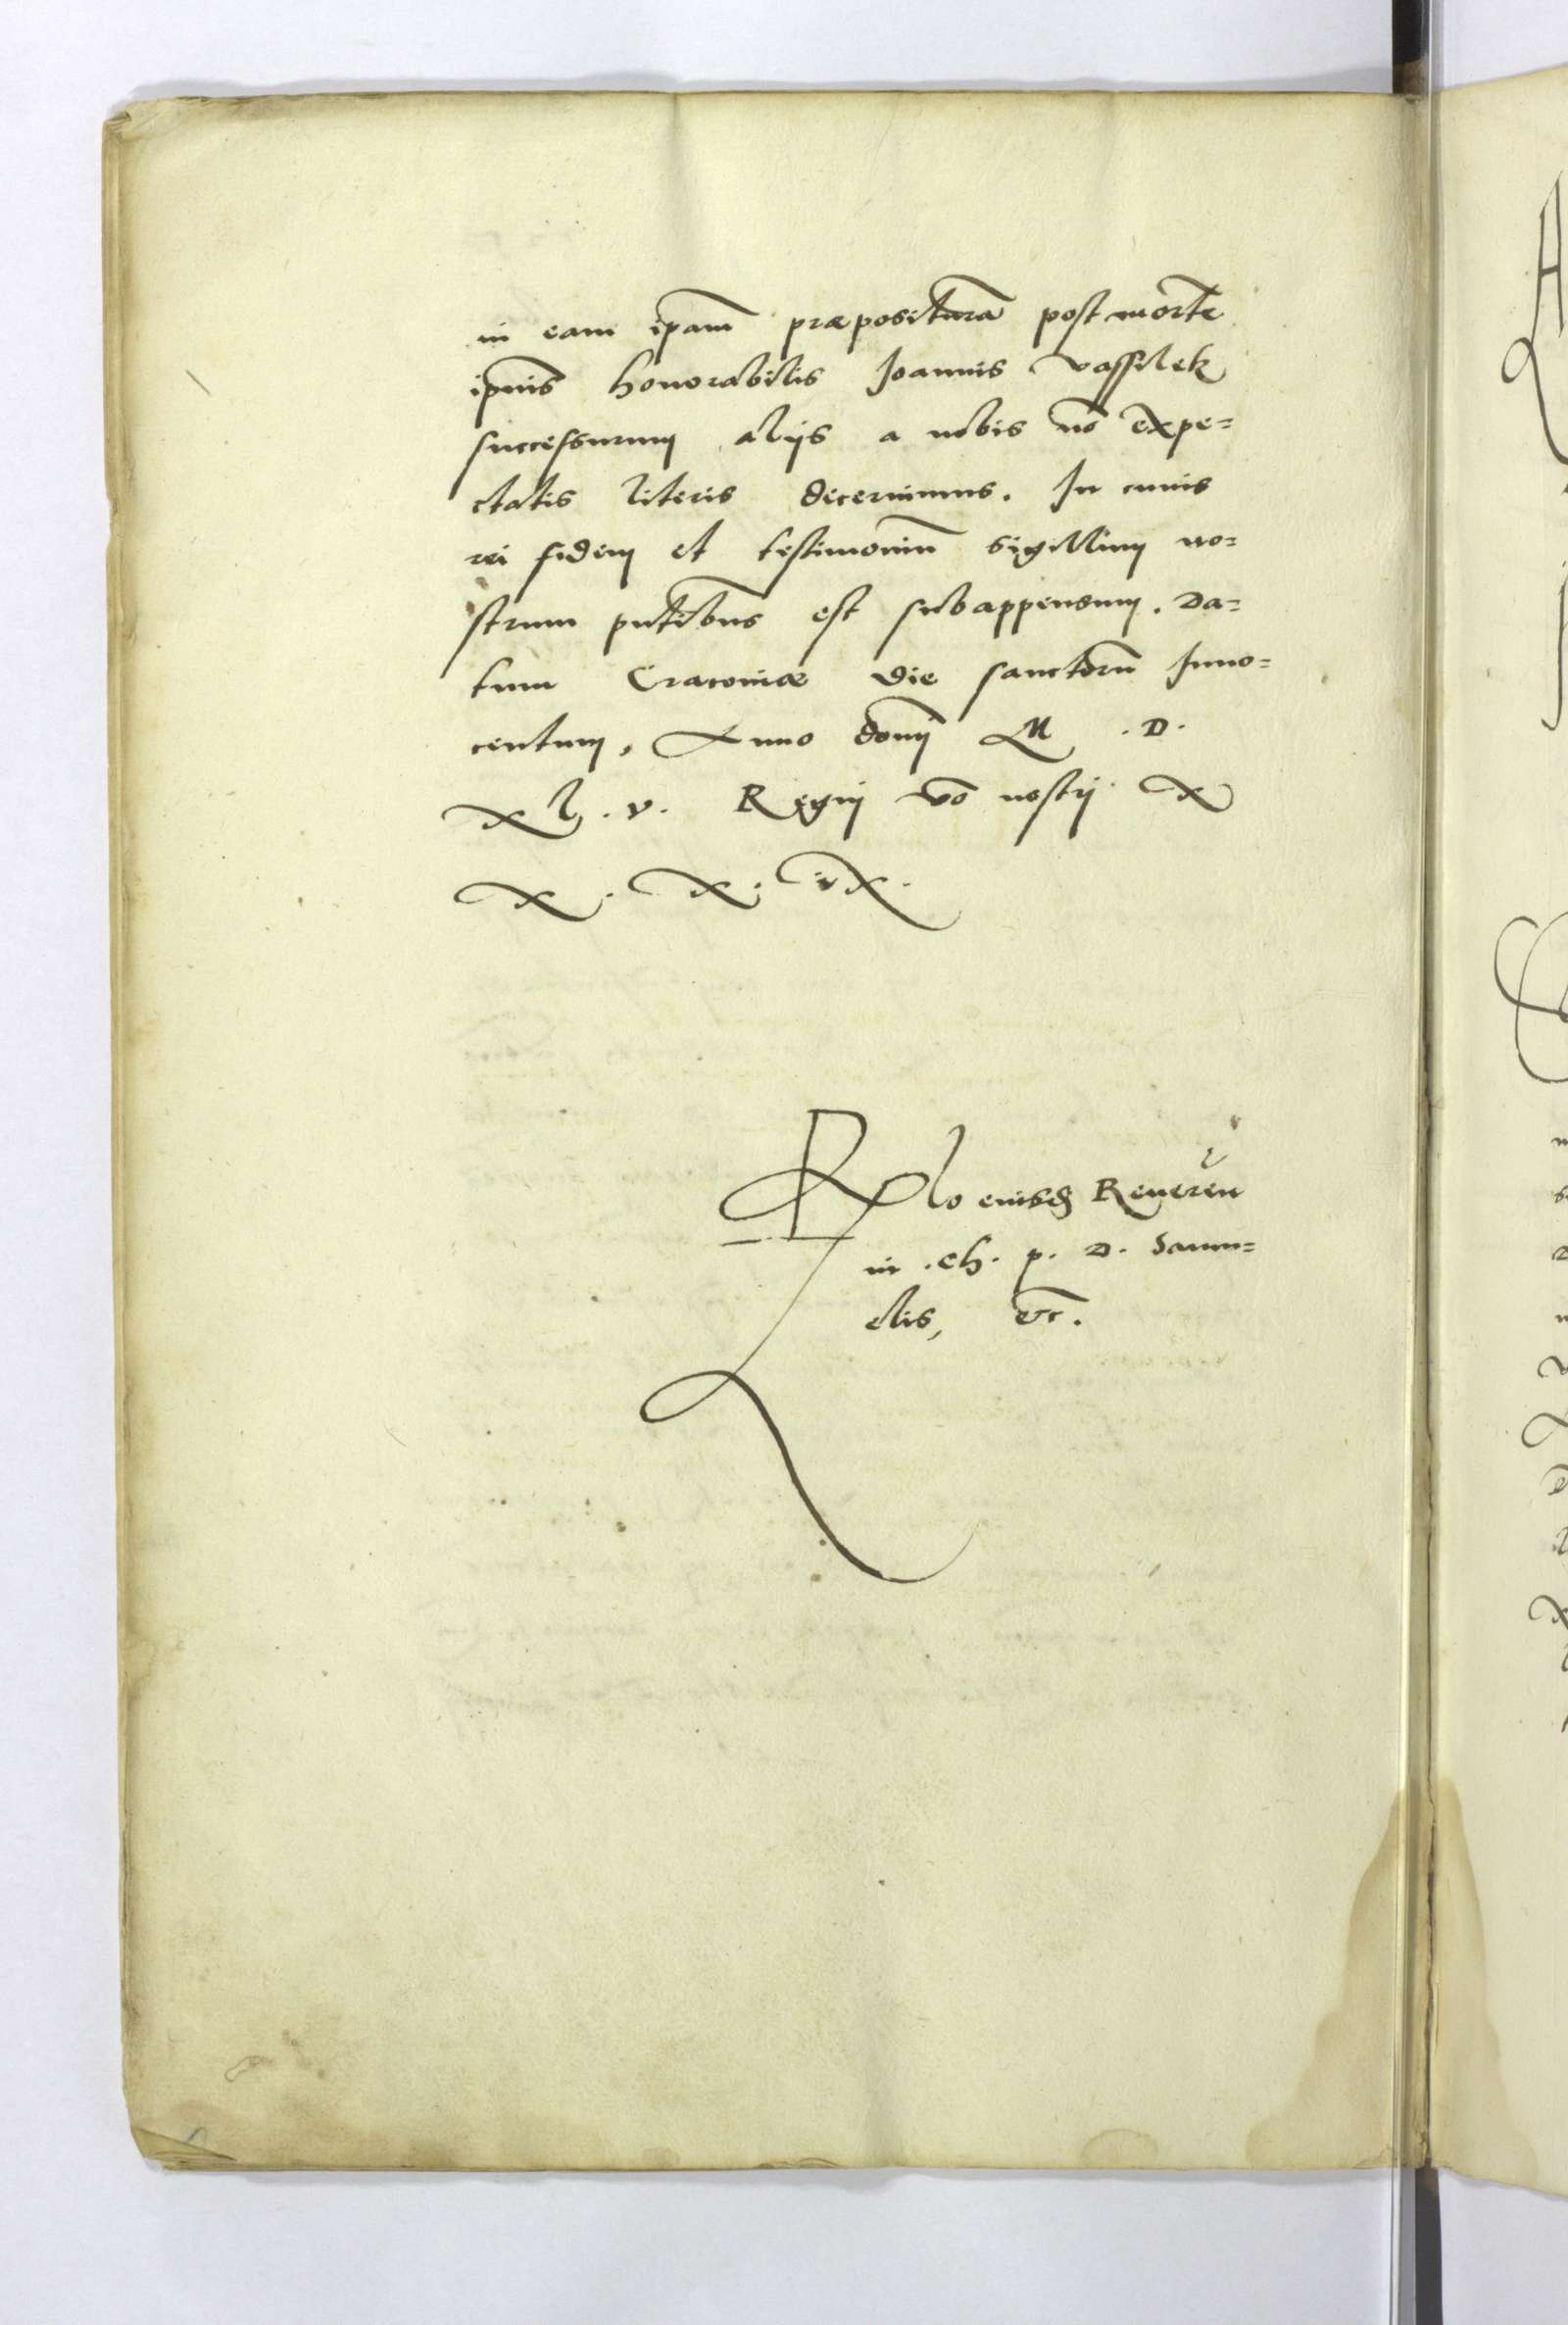 in eam ipam̃ præpositurã post mortẽ
ipius̃ honorabilis Joannis Vassilek
successurum alijs a nobis nõ expe=
ctatis literis decernimus. In cuius
rei fidem et testimoniũ sigillum no=
strum pntibus̃ est subappensum. Da=
tum Cracoviæ die sanctorũ Inno=
centum, Anno domĩ M . D .
XL . v . Regni võ nostri X
X . X . iX .
Rlo eiusd Reueren
in . Ch . p . D . Samu=
elis, etc.